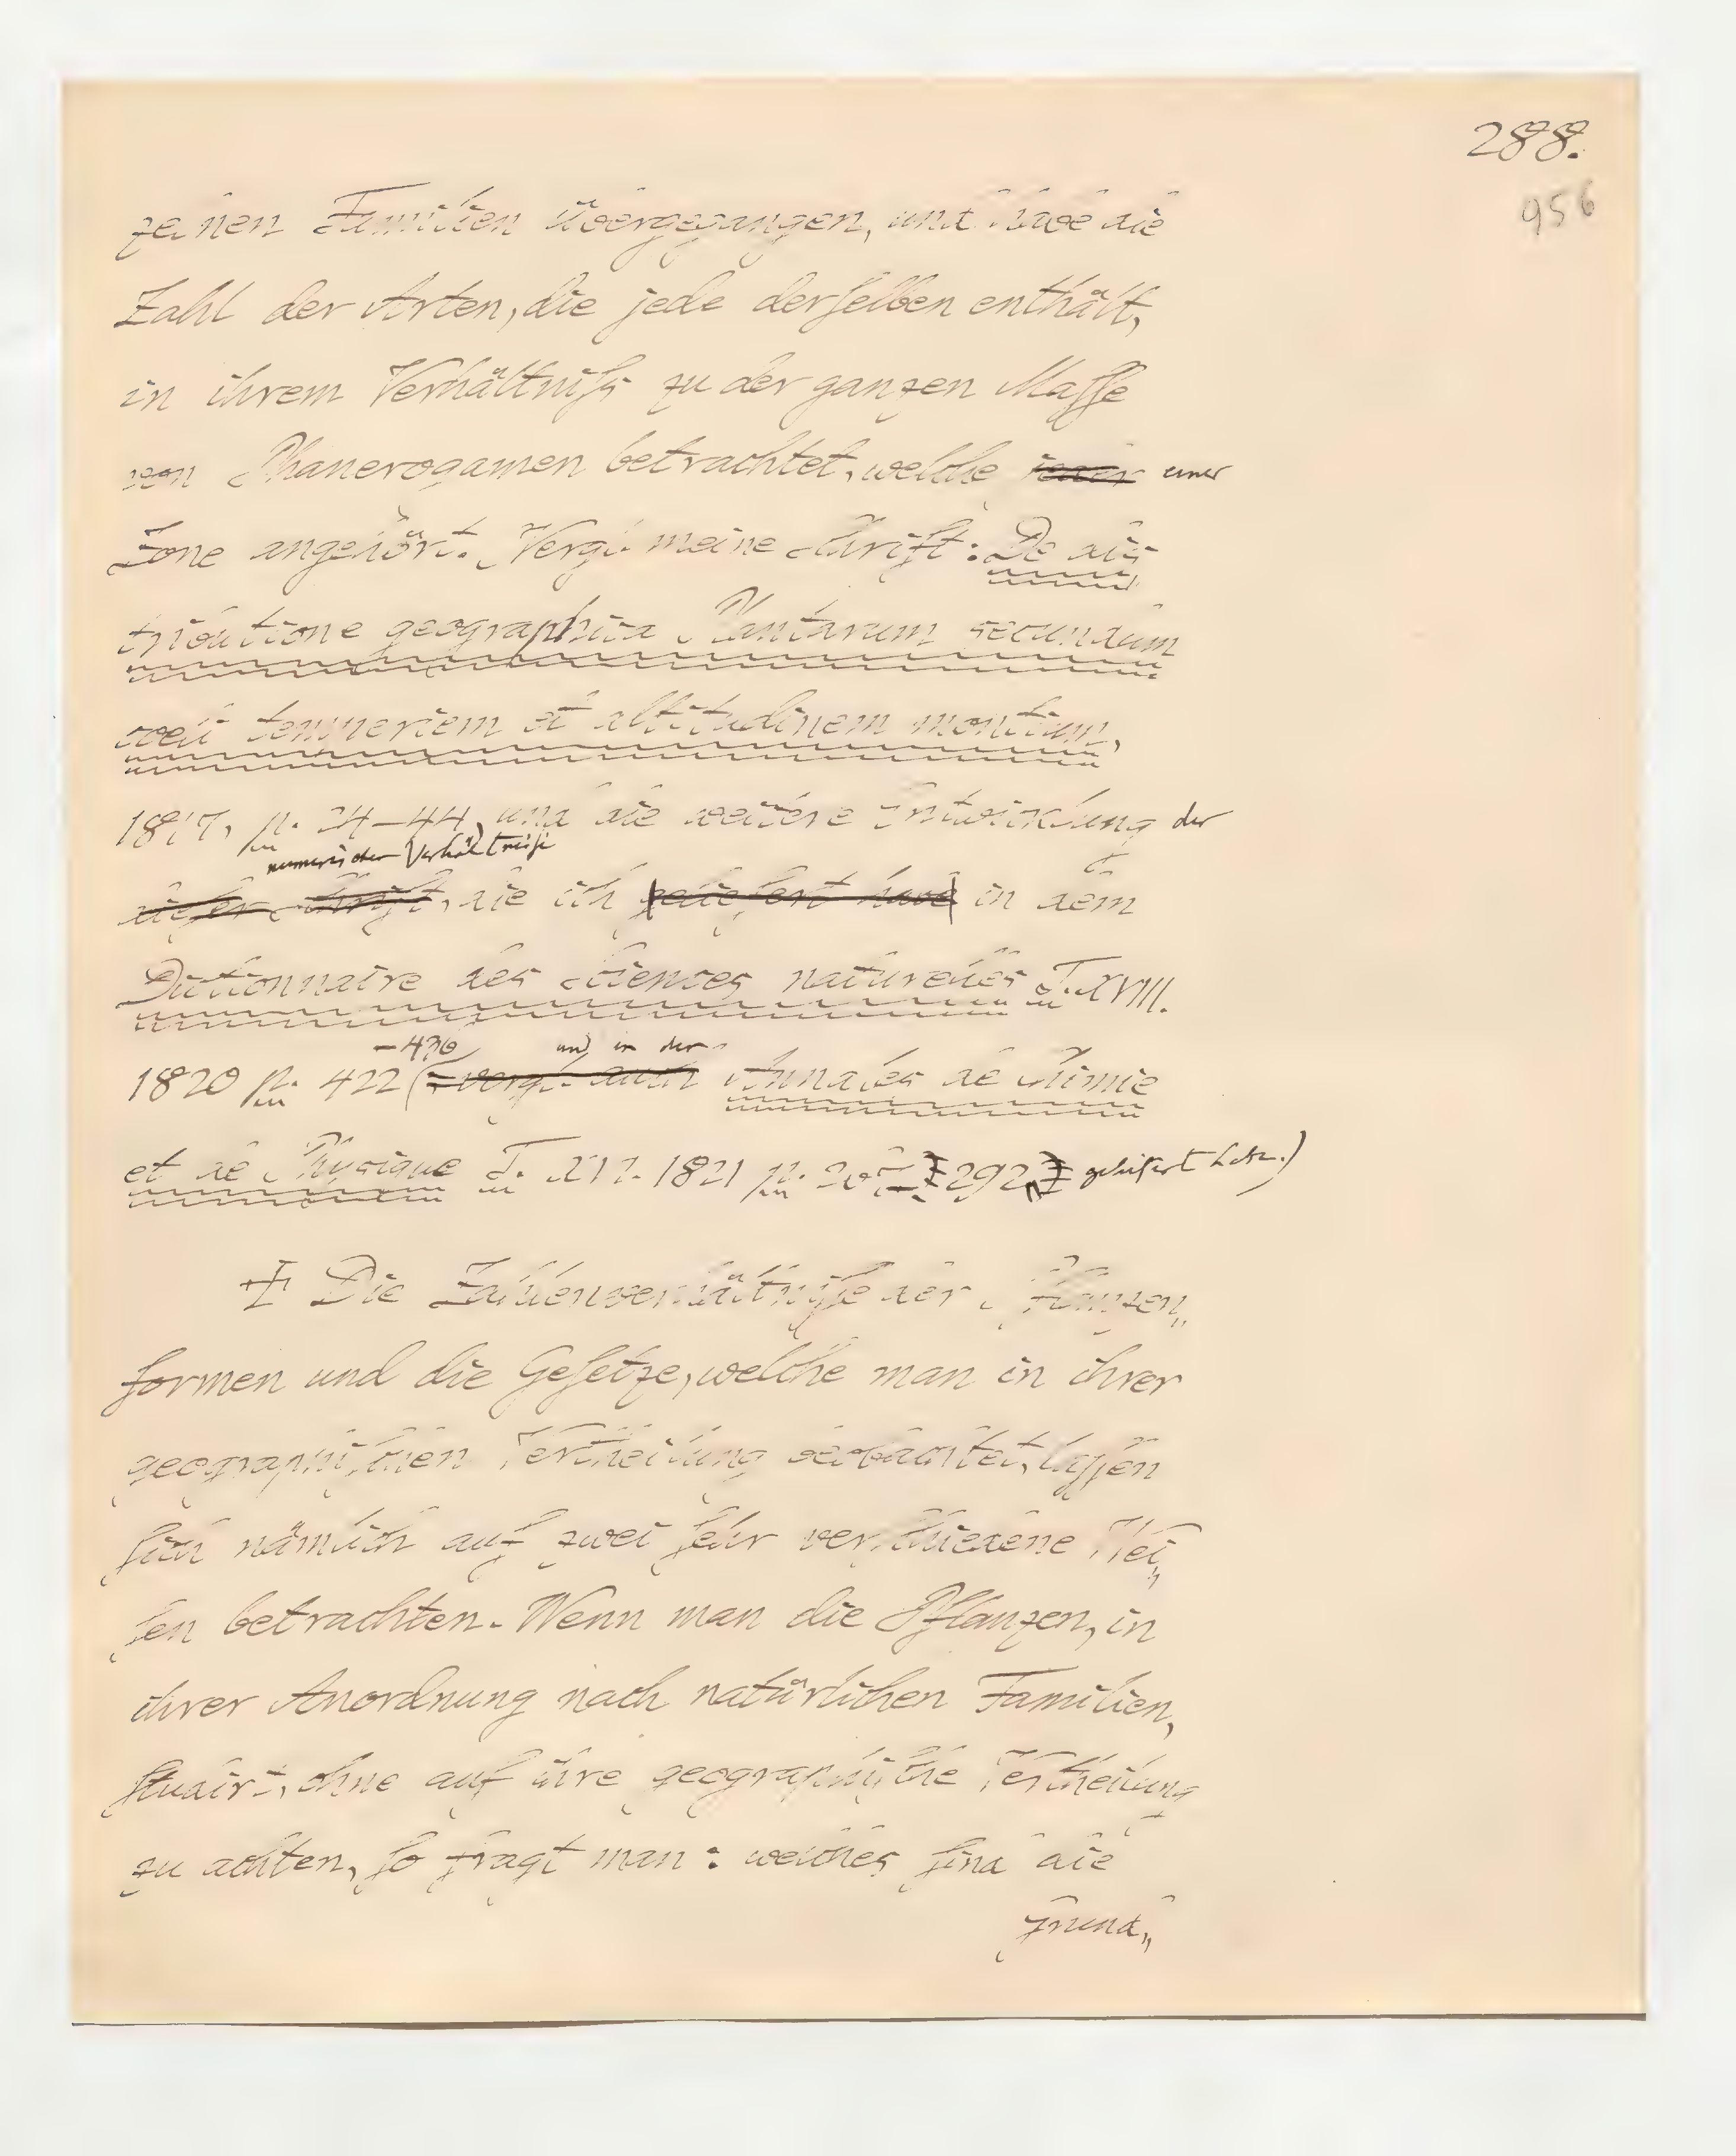 288.
956
zelnen Familien übergegangen, und habe die
Zahl der Arten, die jede derſelben enthält,
in ihrem Verhältniſs zu der ganzen Maſſe
von Phanerogamen betrachtet, welche jener einer
Zone angehört. Vergl. meine Schrift: De dis
tributione geographica Plantarum secundum
coeli temperiem et altitudinem montium,
1817, p. 24–44, und die weitere Entwicklung der
numerischen Verhältniſſe
dieſer Schrift, die ich geliefert habe in dem
Dictionnaire des Sciences naturelles T. XVIII.
–436 und in den
1820 p. 422 (vergl. auch Annales de Chimie
et de Physique T. XVI. 1821 p. 267–292 geliefert habe.)
‡ Die Zahlenverhältniſſe der Pflanzen„
formen und die Geſetze, welche man in ihrer
geographiſchen Vertheilung beobachtet, laſſen
ſich nämlich auf zwei ſehr verſchiedene Wei„
ſen betrachten. Wenn man die Pflanzen, in
ihrer Anordnung nach natürlichen Familien,
ſtudirt, ohne auf ihre geographiſche Vertheilung
zu achten, ſo fragt man: welches ſind die
Grund„